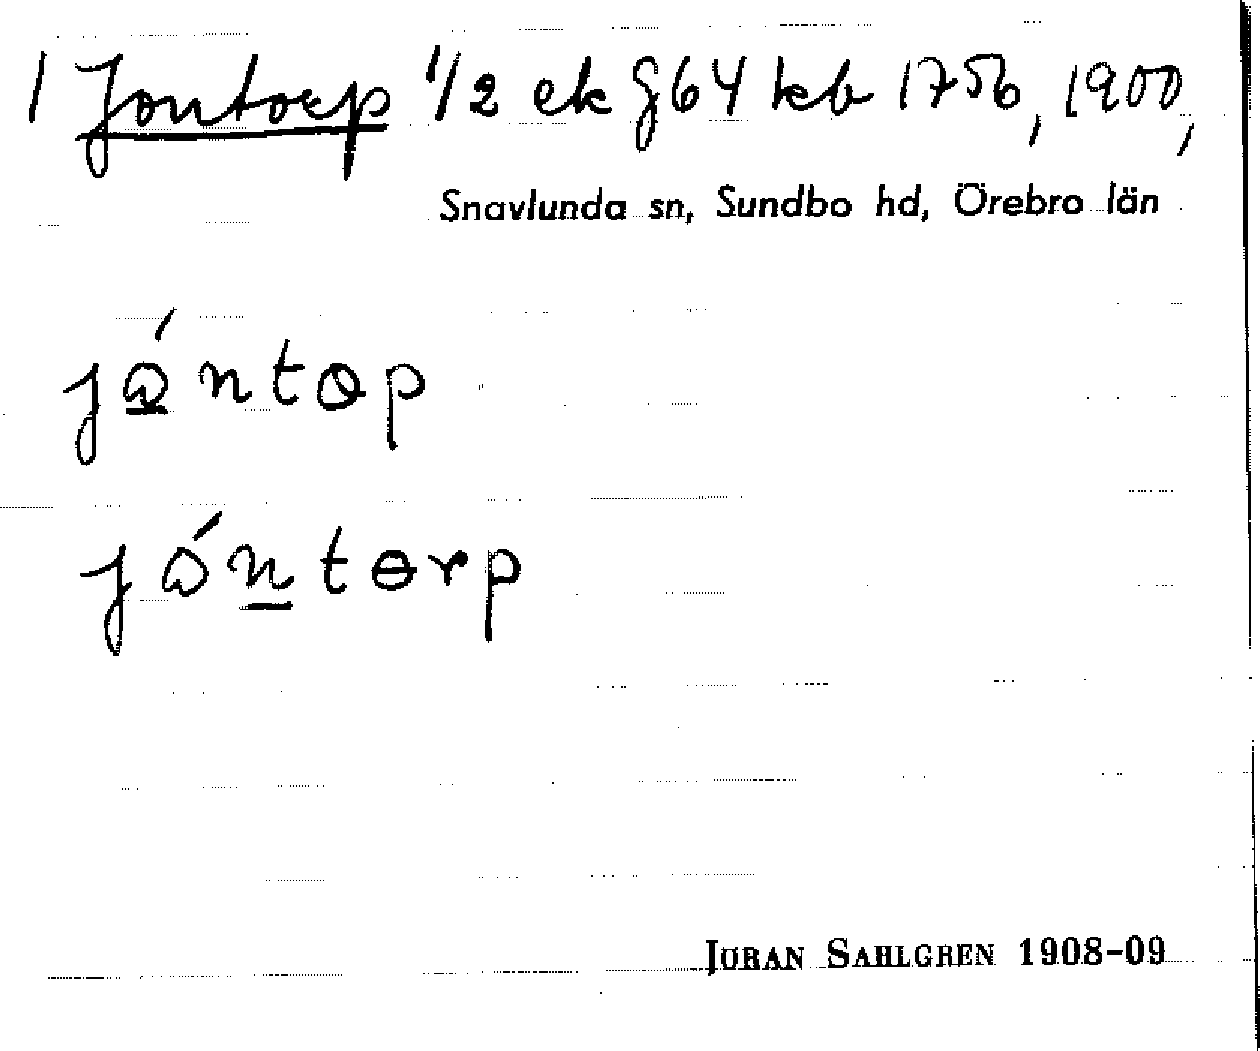 1 Jontorp 1/2 ek J64 kb 1756, 1900,
Snavlunda sn, Sundbo hd, Örebro län
jóntop
jóntɵrp
JÖRAN SAHLGREN 1908-09